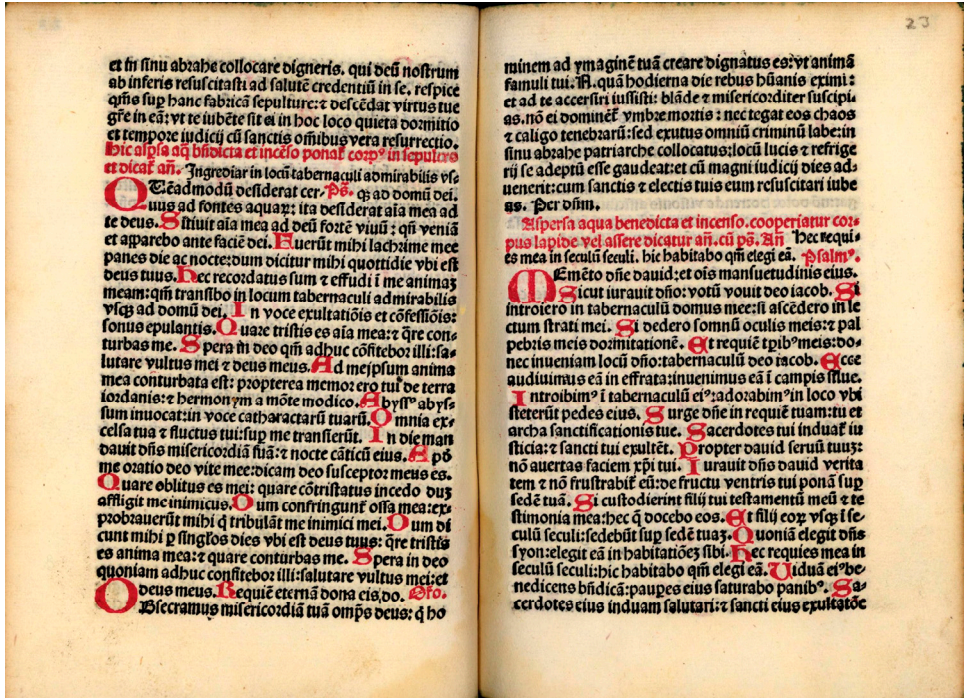 et in sinu abrahe collocare digneris. qui deū nostrum
ab inferis resuscitasti ad salutē credentiū in se. respice
qm̄s sup hanc fabricā sepulture: ⁊ descēdat virtus tue
gr̄e in eā: vt te iubēte sit ei in hoc loco quieta dormitio
et tempore iudicij cū sanctis om̄ibus vera resurrectio.
Hic aspsa aq̄ bn̄dicta et incēso ponat᷑ corpꝰ in sepulcro
et dicat᷑ an̄. Ingrediar in locū tabernaculi admirabilis vs-
Q Uēadmodū desiderat cer- Ps̄. q̢ ad domū dei.
uus ad fontes aquaꝝ: ita desiderat aīa mea ad
te deus. Sitiuit aīa mea ad deū fortē viuū: qn̄ veniā
et apparebo ante faciē dei. Fuerūt mihi lachrime mee
panes die ac nocte: dum dicitur mihi quottidie vbi est
deus tuus. Hec recordatus sum ⁊ effudi ī me animaꝫ
meam: qm̄ transibo in locum tabernaculi admirabilis
vsqꝫ ad domū dei. In voce exultatiōis et cōfessiōis:
sonus epulantis. Quare tristis es aīa mea: ⁊ q̄re con-
turbas me. Spera in deo qm̄ adhuc cōfitebor illi: sa-
lutare vultus mei ⁊ deus meus. Ad meipsum anima
mea conturbata est: propterea memor ero tui de terra
iordanis: ⁊ hermonym a mōte modico. Abyssꝰ abys-
sum inuocat: in voce catharactarū tuarū. Omnia ex-
celsa tua ⁊ fluctus tui: sup me transierūt. In die man
dauit dn̄s misericordiā suā: ⁊ nocte cāticū eius. Apd̄
me oratio deo vite mee: dicam deo susceptor meus es.
Quare oblitus es mei: quare cōtristatus incedo duꝫ
affligit me inimicus. Dum confringunt᷑ ossa mea: ex-
probrauerūt mihi q̄ tribulāt me inimici mei. Dum di
cunt mihi ꝑ singl̄os dies vbi est deus tuus: q̄re tristis
es anima mea: ⁊ quare conturbas me. Spera in deo
quoniam adhuc confitebor illi: salutare vultus mei: et
deus meus. Requiē eternā dona eis, do. Ōro.
O Bsecramus misericordiā tuā omp̄s deus: q̄ ho
23
minem ad ymaginē tuā creare dignatus es: vt animā
famuli tui. N. quā hodierna die rebus hūanis eximi:
et ad te accersiri iussisti: blāde ⁊ misericorditer suscipi-
as. nō ei dominēt᷑ vmbre mortis: nec tegat eos chaos
⁊ caligo tenebrarū: sed exutus omniū criminū labe: in
sinu abrahe patriarche collocatus: locū lucis ⁊ refrige
rij se adeptū esse gaudeat: et cū magni iudicij dies ad-
uenerit: cum sanctis ⁊ electis tuis eum resuscitari iube
as. Per dn̄m.
Aspersa aqua benedicta et incenso. cooperiatur cor-
pus lapide vel assere dicatur an̄. cū ps̄. An̄ Hec requi-
es mea in seculū seculi. hic habitabo qm̄ elegi eā. Psalmꝰ.
M Emēto dn̄e dauid: et oīs mansuetudinis eius.
Sicut iurauit dn̄o: votū vouit deo iacob. Si
introiero in tabernaculū domus mee: si ascēdero in le
ctum strati mei. Si dedero somnū oculis meis: ⁊ pal
pebris meis dormitationē. Et requiē tpībꝰ meis: do-
nec inueniam locū dn̄o: tabernaculū deo iacob. Ecce
audiuimus eā in effrata: inuenimus eā ī campis silue.
Introibimꝰ ī tabernaculū eiꝰ: adorabimꝰ in loco vbi
steterūt pedes eius. Surge dn̄e in requiē tuam: tu et
archa sanctificationis tue. Sacerdotes tui induāt᷑ iu
sticia: ⁊ sancti tui exultēt. Propter dauid seruū tuuꝫ:
nō auertas faciem xp̄i tui. Iurauit dn̄s dauid verita
tem ⁊ nō frustrabit᷑ eū: de fructu ventris tui ponā sup
sedē tuā. Si custodierint filij tui testamentū meū ⁊ te
stimonia mea: hec q̄ docebo eos. Et filij eoꝝ vsqꝫ ī se-
culū seculi: sedebūt sup sedē tuaꝫ. Quoniā elegit dn̄s
syon: elegit eā in habitatiōeꝫ sibi. Hec requies mea in
seculū seculi: hic habitabo qm̄ elegi eā. Uiduā eiꝰ be-
nedicens bn̄dicā: paupes eius saturabo panibꝰ. Sa-
cerdotes eius induam salutari: ⁊ sancti eius exultatōe